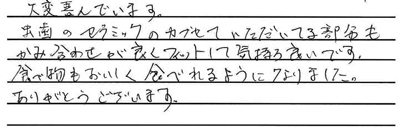 大変喜んでいます。
虫歯のセラミックのカブせていただいてる部分も
かみ合わせが良くフィットして気持ち良いです。
食べ物もおいしく食べれるようになりました。
ありがとうございます。